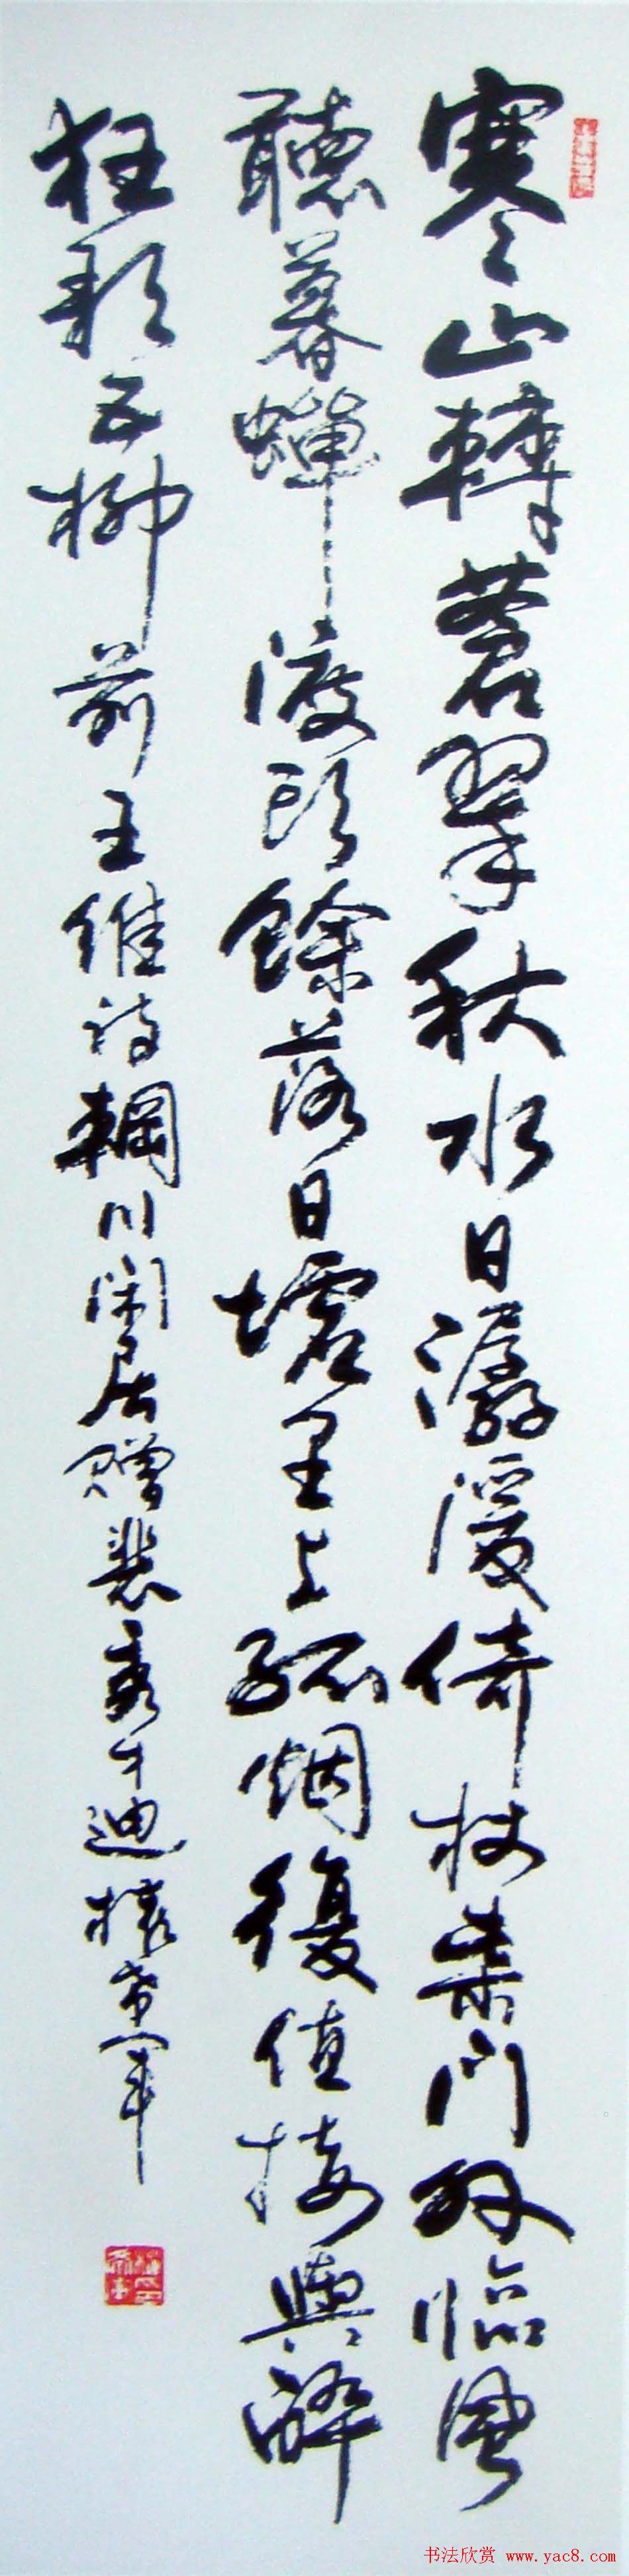 寒山轉蒼翠秋水日潺湲倚杖柴門外臨風
聽暮蟬渡頭餘落日墟里上孤烟復值接輿醉
狂歌五柳前王維詩輞川閑居贈裴秀才迪權希軍
书法欣赏 www.yac8.com